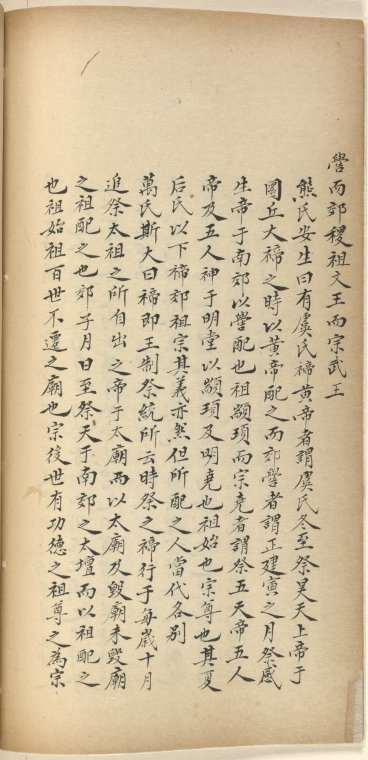 嚳而郊稷祖文王而宗武王
熊氏安生曰有虞氏禘黃帝者謂虞氏冬至祭昊天上帝于
圜丘大禘之時以黃帝配之而郊嚳者謂正建寅之月祭感
生帝于南郊以嚳配也祖顓頊而宗堯者謂祭五天帝五人
帝及五人神于明堂以顓頊及明堯也祖始也宗尊也其夏
后氏以下禘郊祖宗其義亦然但所配之人當代各別
萬氏斯大曰禘即王制祭統所云時祭之禘行于每歲十月
追祭太祖之所自出之帝于太廟而以太廟及毀廟未毀廟
之祖配之也郊子月日至祭天于南郊之太壇而以祖配之
也祖始祖百世不遷之廟也宗後世有功德之祖尊之為宗